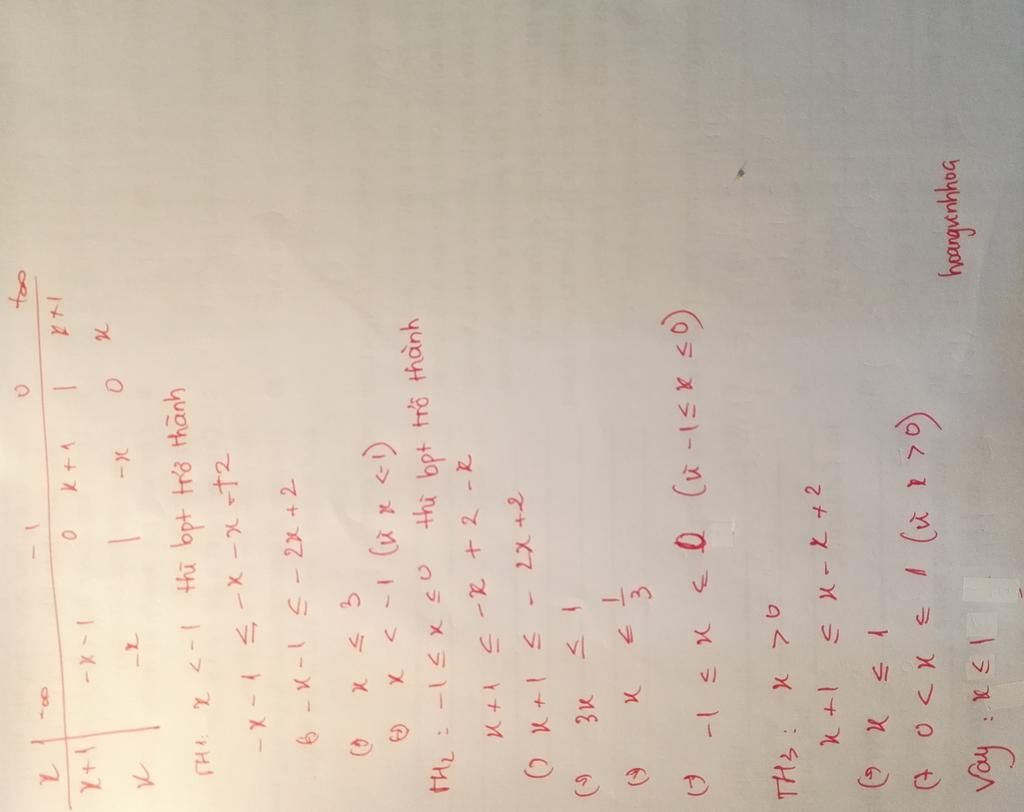 x -∞ -1 0 +∞
x+1 -x-1 0 x+1 | x+1
x -x | -x 0 x
TH1: x < -1 thì bpt trở thành
-x-1 ≤ -x-x+2
(=) -x-1 ≤ -2x+2
(=) x ≤ 3
(=) x < -1 (vì x < -1)
TH2: -1 ≤ x ≤ 0 thì bpt trở thành
x+1 ≤ -x+2-x
(=) x+1 ≤ -2x+2
(=) 3x ≤ 1
(=) x ≤ 1/3
(=) -1 ≤ x ≤ 0 (vì -1 ≤ x ≤ 0)
TH3: x > 0
x+1 ≤ x-x+2
(=) x ≤ 1
(=) 0 < x ≤ 1 (vì x > 0)
Vậy: x ≤ 1
hoangvinhhoa